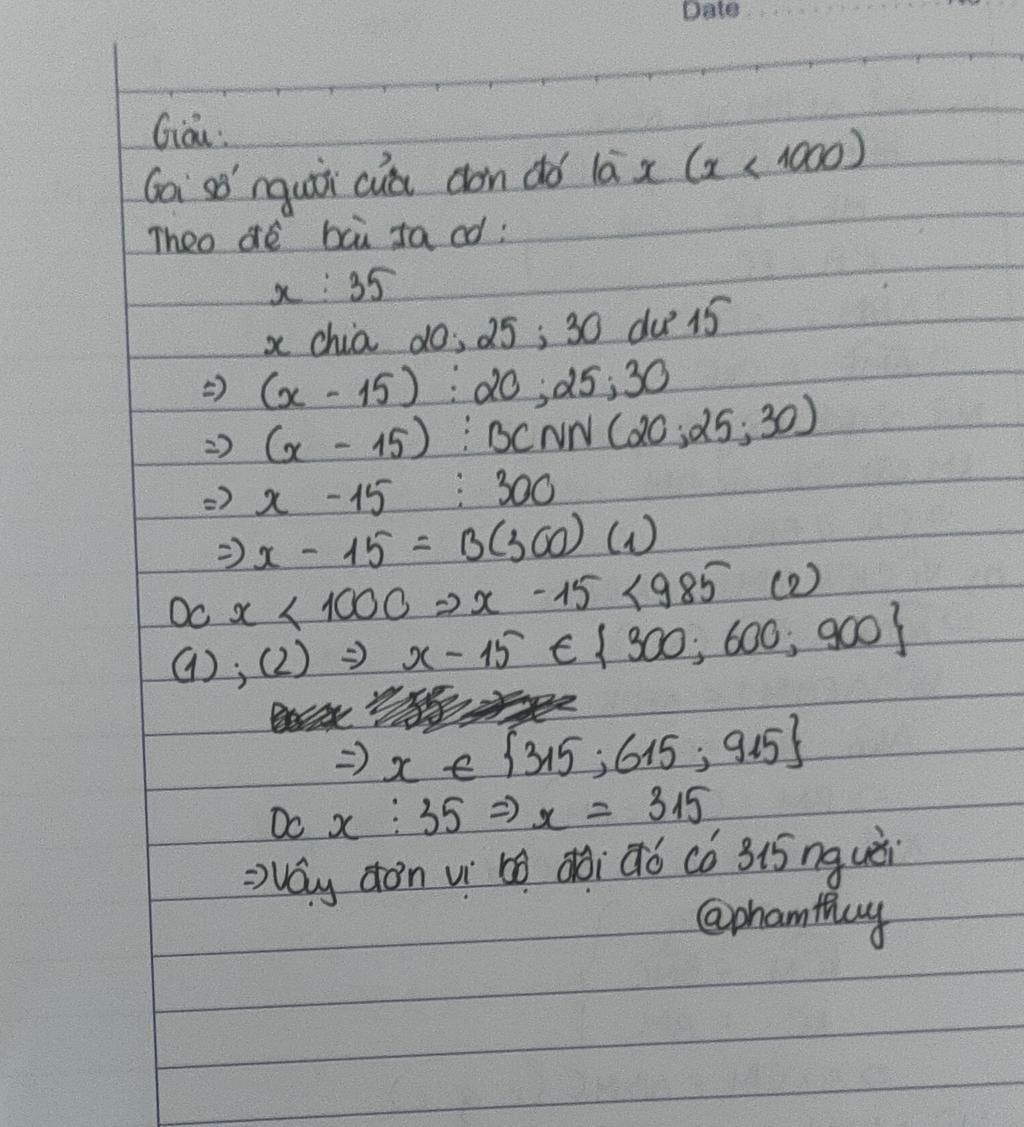 Date
Giải:
Gọi số người của đơn đó là x (x < 1000)
Theo đề bài ta có:
x ⋮ 35
x chia 20; 25; 30 dư 15
=> (x - 15) ⋮ 20; 25; 30
=> (x - 15) ⋮ BCNN (20; 25; 30)
=> x - 15 ⋮ 300
=> x - 15 = B(300) (1)
Dc x < 1000 => x - 15 < 985 (2)
(1); (2) => x - 15 ∈ {300; 600; 900}
=> x ∈ {315; 615; 915}
Dc x ⋮ 35 => x = 315
=> Vậy đơn vị bộ đội đó có 315 người
@phamthuy